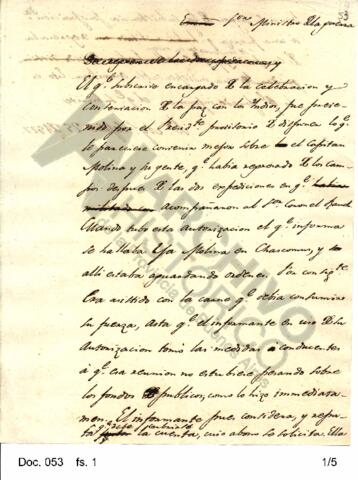 Sor. Ministro de la guerra
53
El q.e subscrive encargado de la celebracion y
conservacion de la paz con los Indios, fue preve-
nido por el Presid.te provisorio de disponer lo q.e
le pareciese convenir mejor sobre el Capitan
Molina y su gente, q.e havia regresado de los cam-
pos despues de las dos expediciones en q.e
acompañaron al Sor. Coronel Rauch
Cuando tubo esta autorizacion el q.e informa
se hallaba ya Molina en Chascomus, y
alli estaba aguardando ordenes. Por consig.te
era asistido con la carne q.e debia consumirse
su fuerza, asta q.e el informante en uso de su
autorizacion tomó las medidas conducentes
á q.e esa reunion no estubiese pesando sobre
los fondos publicos, como lo hizo inmediata-
men. El informante pues considera, y repu-
ta la cuenta, cuio abono se solicita. Ella
Doc. 053 fs. 1
1/5